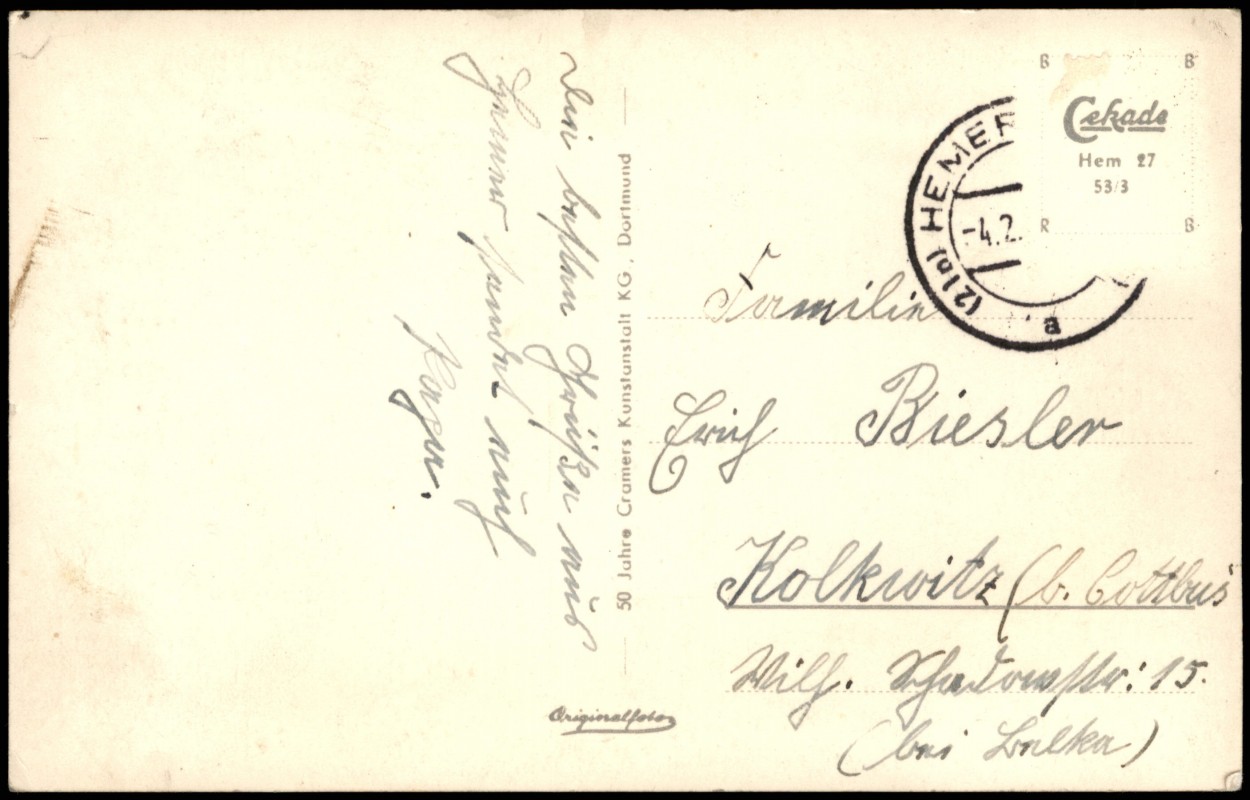 Die besten Grüße aus
Hemer sendet auch
50 Jahre Cramers Kunstanstalt KG, Dortmund
Originalfoto
(21b) HEMER
-4.2.
a
B B
Cekade
Hem 27
53/3
R B
Familie
Erich Biesler
Kolkwitz (b. Cottbus
Wilh. Schadowstr: 15.
(bei Balka)